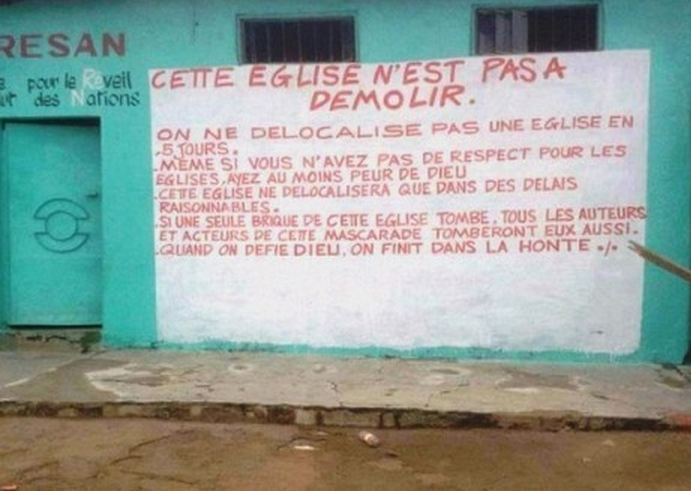 RESAN
pour le Reveil
des Nations
CETTE EGLISE N'EST PAS A
DEMOLIR.
ON NE DELOCALISE PAS UNE EGLISE EN
.5 JOURS.
.MÊME SI VOUS N'AVEZ PAS DE RESPECT POUR LES
EGLISES, AYEZ AU MOINS PEUR DE DIEU
.CETTE EGLISE NE DELOCALISERA QUE DANS DES DELAIS
RAISONNABLES.
.SI UNE SEULE BRIQUE DE CETTE EGLISE TOMBE, TOUS LES AUTEURS
ET ACTEURS DE CETTE MASCARADE TOMBERONT EUX AUSSI.
.QUAND ON DEFIE DIEU, ON FINIT DANS LA HONTE ./.